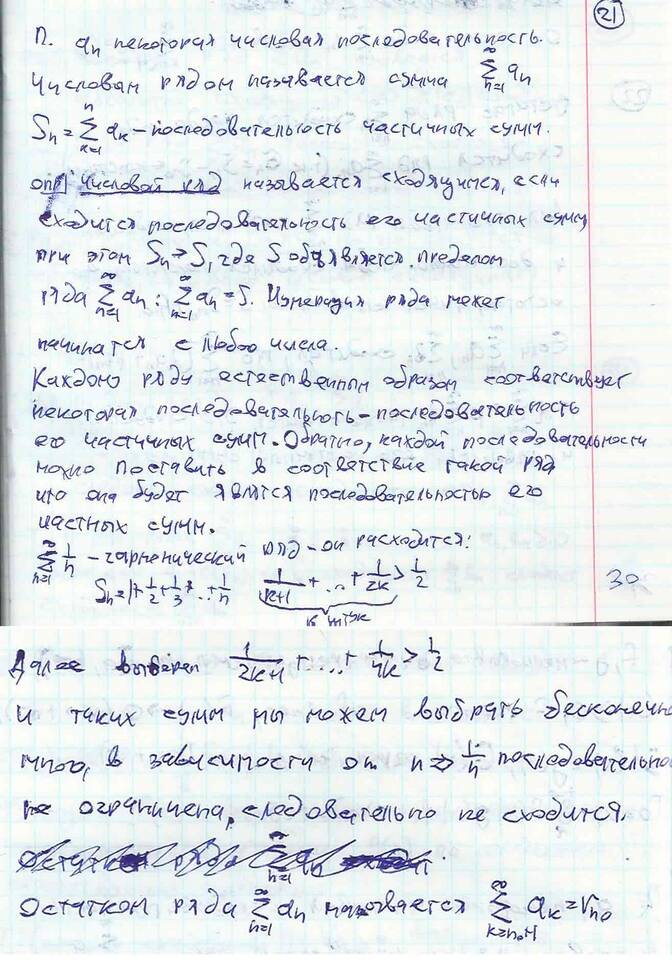 21
П. aₙ некоторая числовая последовательность.
Числовым рядом называется сумма ∑_{n=1}^{∞} aₙ
Sₙ = ∑_{k=1}^{n} aₖ – последовательность частичных сумм.
опр| Числовой ряд называется сходящимся, если
сходится последовательность его частичных сумм
при этом Sₙ → S, где S объявляется пределом
ряда ∑_{n=1}^{∞} aₙ : ∑_{n=1}^{∞} aₙ = S. Нумерация ряда может
начинатся с любого числа.
Каждому ряду естественным образом соответствует
некоторая последовательность – последовательность
его частичных сумм. Обратно, каждой последовательности
можно поставить в соответствие такой ряд
что она будет являтся последовательностью его
частных сумм.
∑_{n=1}^{∞} 1/n – гармонический ряд – он расходится:
Sₙ = 1 + 1/2 + 1/3 + ... + 1/n 1/(k+1) + ... + 1/(2k) > 1/2 30
k штук
Далее выберем 1/(2k+1) + ... + 1/(4k) > 1/2
и таких сумм мы можем выбрать бесконечно
много, в зависимости от n ⇒ 1/n последовательно
не ограничена, следовательно не сходится.
Остатком ряда ∑_{n=1}^{∞} aₙ называется ∑_{k=n₀+1}^{∞} aₖ = r_{n₀}